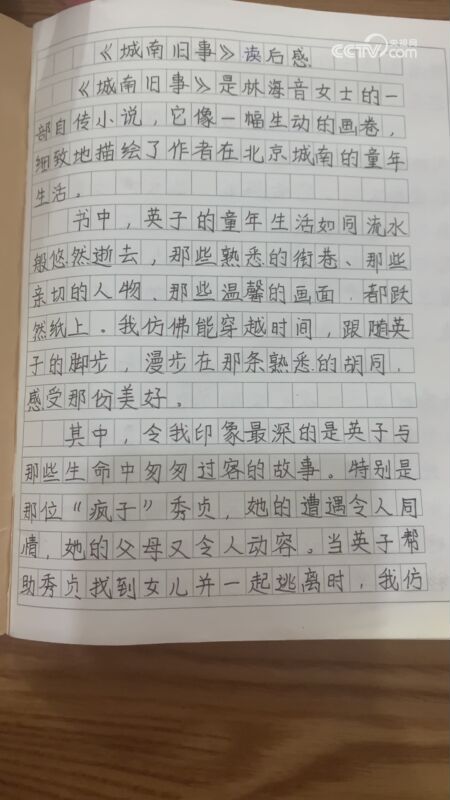 央视网
CCTV.com
《城南旧事》读后感
《城南旧事》是林海音女士的一
部自传小说，它像一幅生动的画卷，
细致地描绘了作者在北京城南的童年
生活。
书中，英子的童年生活如同流水
般悠然逝去，那些熟悉的街巷、那些
亲切的人物、那些温馨的画面，都跃
然纸上。我仿佛能穿越时间，跟随英
子的脚步，漫步在那条熟悉的胡同，
感受那份美好。
其中，令我印象最深的是英子与
那些生命中匆匆过客的故事。特别是
那位“疯子”秀贞，她的遭遇令人同
情，她的父母又令人动容。当英子帮
助秀贞找到女儿并一起逃离时，我仿